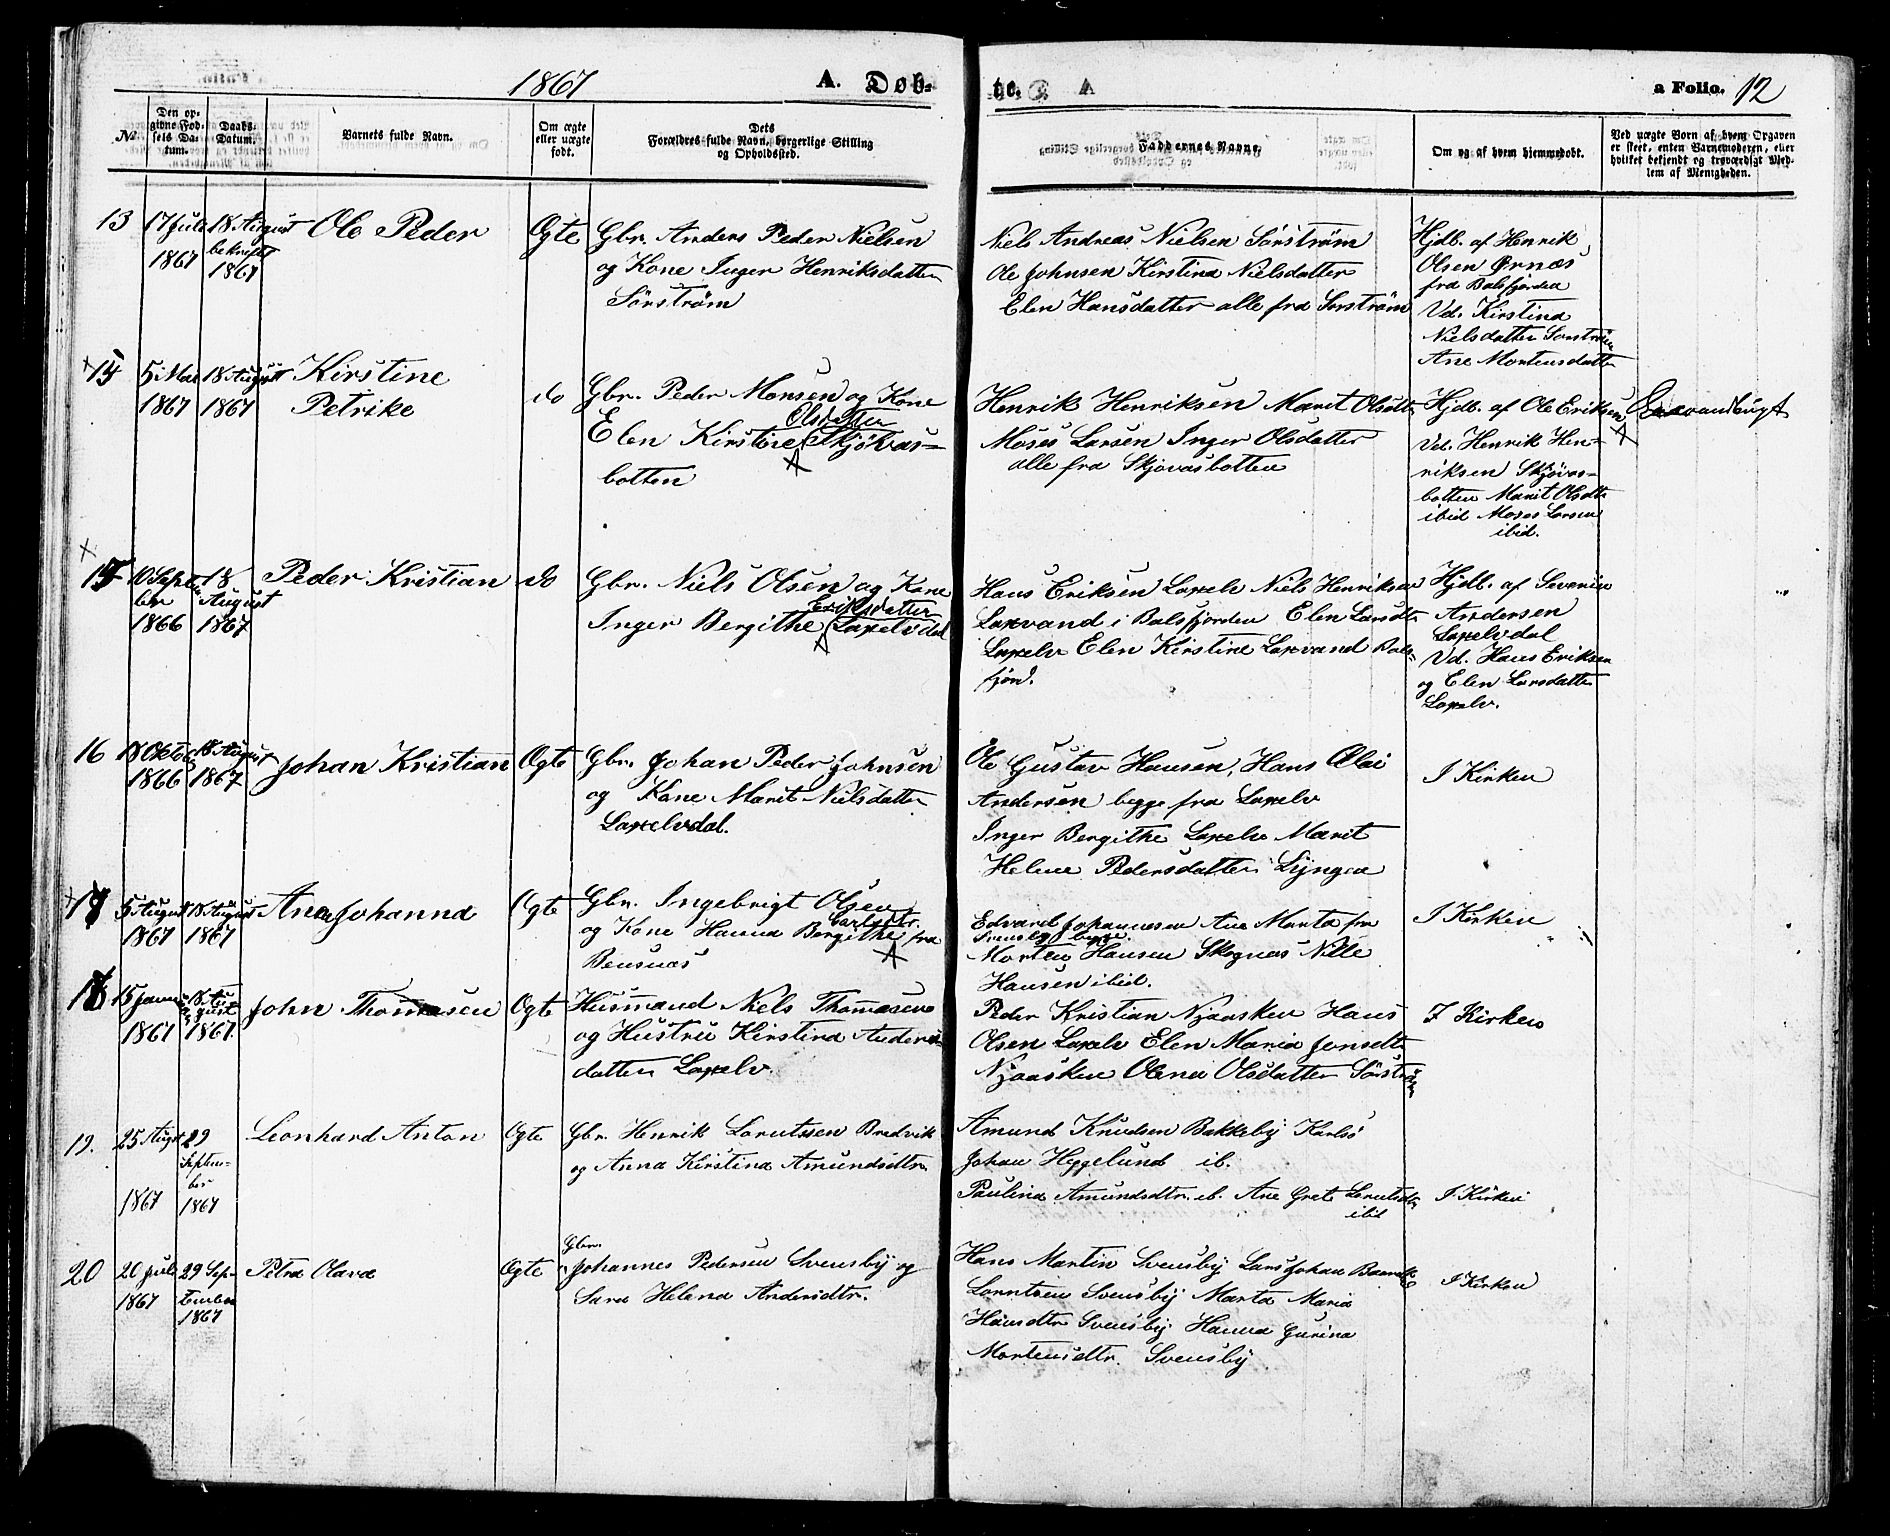 1867 A. Døb-
te. a Folio. 12
№
Den op-
givne Fød-
sels Da-
tum.
Daabs-
Datum.
Barnets fulde Navn.
Om ægte
eller uægte
født.
Dets
Forældres fulde Navn, borgerlige Stilling
og Opholdssted.
Faddernes Navne.
Om og af hvem hjemmedøbt.
Ved uægte Børn af hvem Opgaven
er skeet, enten Barnemoderen, eller
hvilket bekjendt og troværdigt Med-
lem af Menigheden.
13
17 Juli
1867
18 August
bekræftet
1867
Ole Peder
Ægte
Gbr. Anders Peder Nielsen
og Kone Inger Henriksdatter
Sörström
Niels Andreas Nielsen Sörström
Ole Johnsen Kirstina Nielsdatter
Elen Hansdatter alle fra Sörström
Hjdb. af Henrik
Olsen Ørnæs
fra Balsfjorden
Vd. Kirstina
Nielsdatter Sorström
Ane Mortensdatter
14
5 Mai
1867
18 August
1867
Kirstine
Petrike
do
Gbr. Peder Monsen og Kone
Olsdatter
Elen Kirstine Skjövas-
botten
Henrik Henriksen Marit Olsdtr
Moses Larsen Inger Olsdatter
alle fra Skjövasbotten
Hjdb. af Ole Eriksen
Vd. Henrik Hen-
riksen Skjövas-
botten Marit Olsdtr
ibid Moses Larsen
ibid.
15
10 Septem
ber
1866
18
August
1867
Peder Kristian
do
Gbr. Niels Olsen og Kone
Eriksdatter
Inger Bergithe Laxelvdal
Hans Eriksen Laxelv Niels Henriksen
Laxvand i Balsfjorden Elen Larsdtr
Laxelv Elen Kirstine Laxvand Bals-
fjord.
Hjdb. af Severin
Andersen
Laxelvdal
Vd. Hans Eriksen
og Elen Larsdatter
Laxelv.
16
18 Oktob
1866
18 August
1867
Johan Kristian
Ægte
Gbr. Johan Peder Johnsen
og Kone Marit Nielsdatter
Laxelvdal.
Ole Gustav Hansen, Hans Olai
Andersen begge fra Laxelv
Inger Bergithe Laxelv Marit
Helene Pedersdatter Lyngen
I Kirken
17
5 August
1867
18 August
1867
Ane Johanna
Ægte
Gbr. Ingebrigt Olsen
Carlsdtr.
og Kone Hanna Bergithe fra
Bensnæs
Edvard Johannesen Ane Marta fra
Svensby begge.
Morten Hansen Skognæs Nille
Hansen ibid.
I Kirken
18
15 Januar
1867
18 Au-
gust
1867
John Thomasen
Ægte
Husmand Niels Thomasen
og Hustru Kirstina Anders-
datter Laxelv.
Peder Kristian Njaasken Hans
Olsen Laxelv Elen Maria Jonsdtr
Njaasken Olena Olsdatter Sörström
I Kirken
19.
25 Augst
1867
29
Septem-
ber
1867
Leonhard Anton
Ægte
Gbr. Henrik Lorntssen Bredvik
og Anna Kirstina Amundsdtr.
Amund Knudsen Bakkeby Karlsö
Johan Heggelund ib.
Paulina Amundsdtr. ib. Ane Grete Lorntsdtr
ibid
I Kirken
20
20 Juli
1867
29 Sep-
tember
1867
Petra Olava
Ægte
Gbr.
Johannes Pedersen Svensby og
Sara Helena Andersdtr.
Hans Martin Svensby Lars Johan
Lorntzen Svensby Marta Maria
Hansdtr Svensby Hanna Gurina
Mortensdtr. Svensby
I Kirken